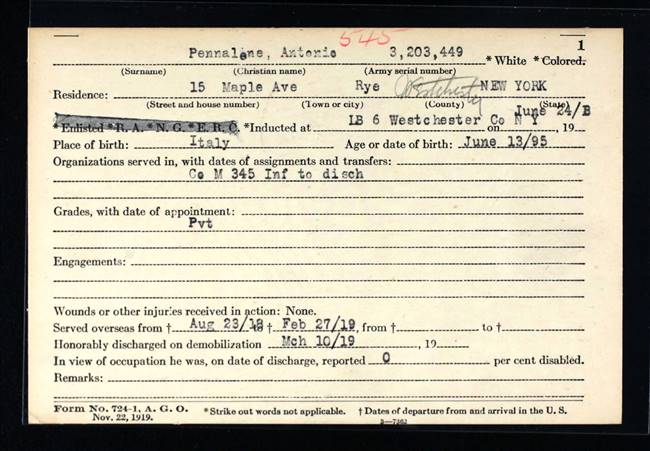 545
1
Pennalene, Antonio 3,203,449 * White * Colored.
(Surname) (Christian name) (Army serial number)
Residence: 15 Maple Ave Rye Westchester NEW YORK
(Street and house number) (Town or city) (County) (State)
June 24/
* Enlisted * R. A. * N. G. * E. R. C. * Inducted at LB 6 Westchester Co N Y on , 19
Place of birth: Italy Age or date of birth: June 13/95
Organizations served in, with dates of assignments and transfers:
Co M 345 Inf to disch
Grades, with date of appointment:
Pvt
Engagements:
Wounds or other injuries received in action: None.
Served overseas from † Aug 23/18 to † Feb 27/19, from † to †
Honorably discharged on demobilization Mch 10/19 , 19
In view of occupation he was, on date of discharge, reported 0 per cent disabled.
Remarks:
Form No. 724-1, A. G. O. * Strike out words not applicable. † Dates of departure from and arrival in the U. S.
Nov. 22, 1919. 3—7362